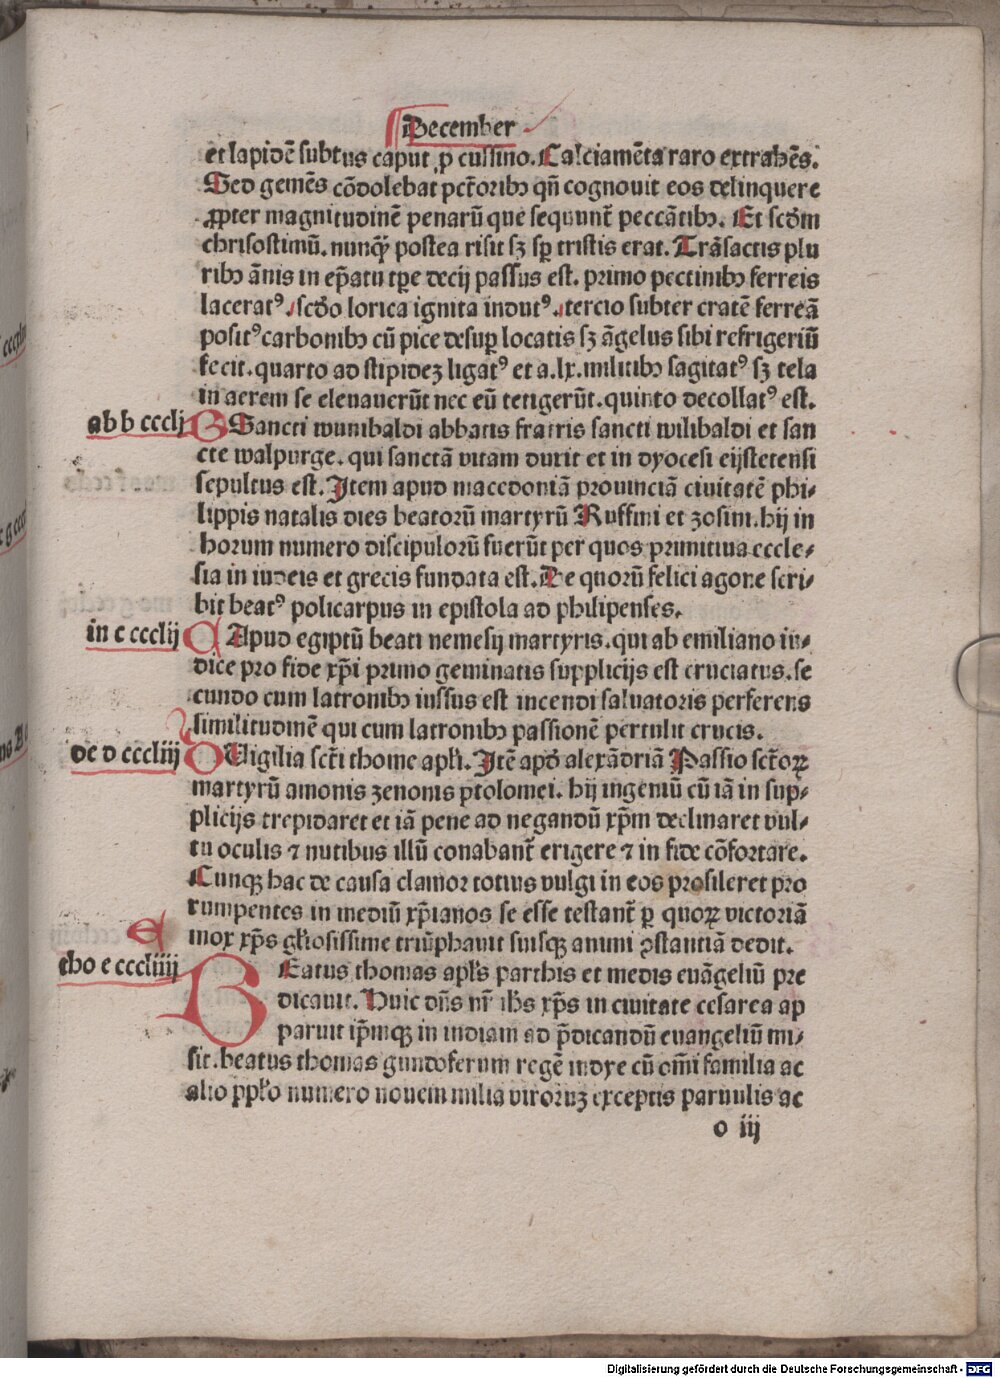 December
et lapidē subtus caput ꝓ cussino. Calciamēta raro extrahēs.
Sed gemēs cōdolebat pctōribꝫ qn̄ cognouit eos delinquere
ꝓpter magnitudinē penarū que sequunt̄ peccātibꝫ. Et scdm̄
chrisostimū. nunqꝫ postea risit sꝫ sp̄ tristis erat. Trāsactis plu
ribꝫ ānis in ep̄atu tp̄e decij passus est. primo pectinibꝫ ferreis
laceratꝰ. scdo lorica ignita indutꝰ. tercio subter cratē ferreā
positꝰ carbonibꝫ cū pice desuꝑ locatis sꝫ āgelus sibi refrigeriū
fecit. quarto ad stipidez ligatꝰ et a .lx. militibꝫ sagitatꝰ sꝫ tela
in aerem se eleuauerūt nec eū tetigerūt. quinto decollatꝰ est.
abb b ccclj Sancti wunibaldi abbatis fratris sancti wilibaldi et san
cte walpurge. qui sanctā vitam duxit et in dyocesi eijstetensi
sepultus est. Item apud macedoniā prouinciā ciuitatē phi⸗
lippis natalis dies beatorū martyrū Ruffini et zosimi. hij in
horum numero discipulorū fuerūt per quos primitiua eccle⸗
sia in iudeis et grecis fundata est. De quorū felici agone scri⸗
bit beatꝰ policarpus in epistola ad philipenses.
in c ccclij Apud egiptū beati nemesij martyris. qui ab emiliano iu⸗
dice pro fide xp̄i primo geminatis supplicijs est cruciatus. se
cundo cum latronibꝫ iussus est incendi saluatoris perferens
similitudinē qui cum latronibꝫ passionē pertulit crucis.
de d cccliij Vigilia scti thome apli. Itē apd alexādriā Passio sctōꝝ
martyrū amonis zenonis ptolomei. hij ingeniū cū iā in sup⸗
plicijs trepidaret et iā pene ad negandū xp̄m declinaret vul⸗
tu oculis ⁊ nutibus illū conabant̄ erigere ⁊ in fide cōfortare.
Cunqꝫ hac de causa clamor totius vulgi in eos prosileret pro
rumpentes in mediū xp̄ianos se esse testant̄ ꝑ quoꝝ victoriā
mox xp̄s gliosissime triūphauit suisqꝫ animi ꝯstantiā dedit.
tho e cccliiij Beatus thomas apls parthis et medis euāgeliū pre
dicauit. Huic dn̄s nr̄ ihs xp̄s in ciuitate cesarea ap
paruit ip̄mqꝫ in indiam ad p̄dicandū euangeliū mi⸗
sit. beatus thomas gundoferum regē indye cū om̄i familia ac
alio pplo numero nouem milia viroruꝫ exceptis paruulis ac
o iij
Digitalisierung gefördert durch die Deutsche Forschungsgemeinschaft - DFG